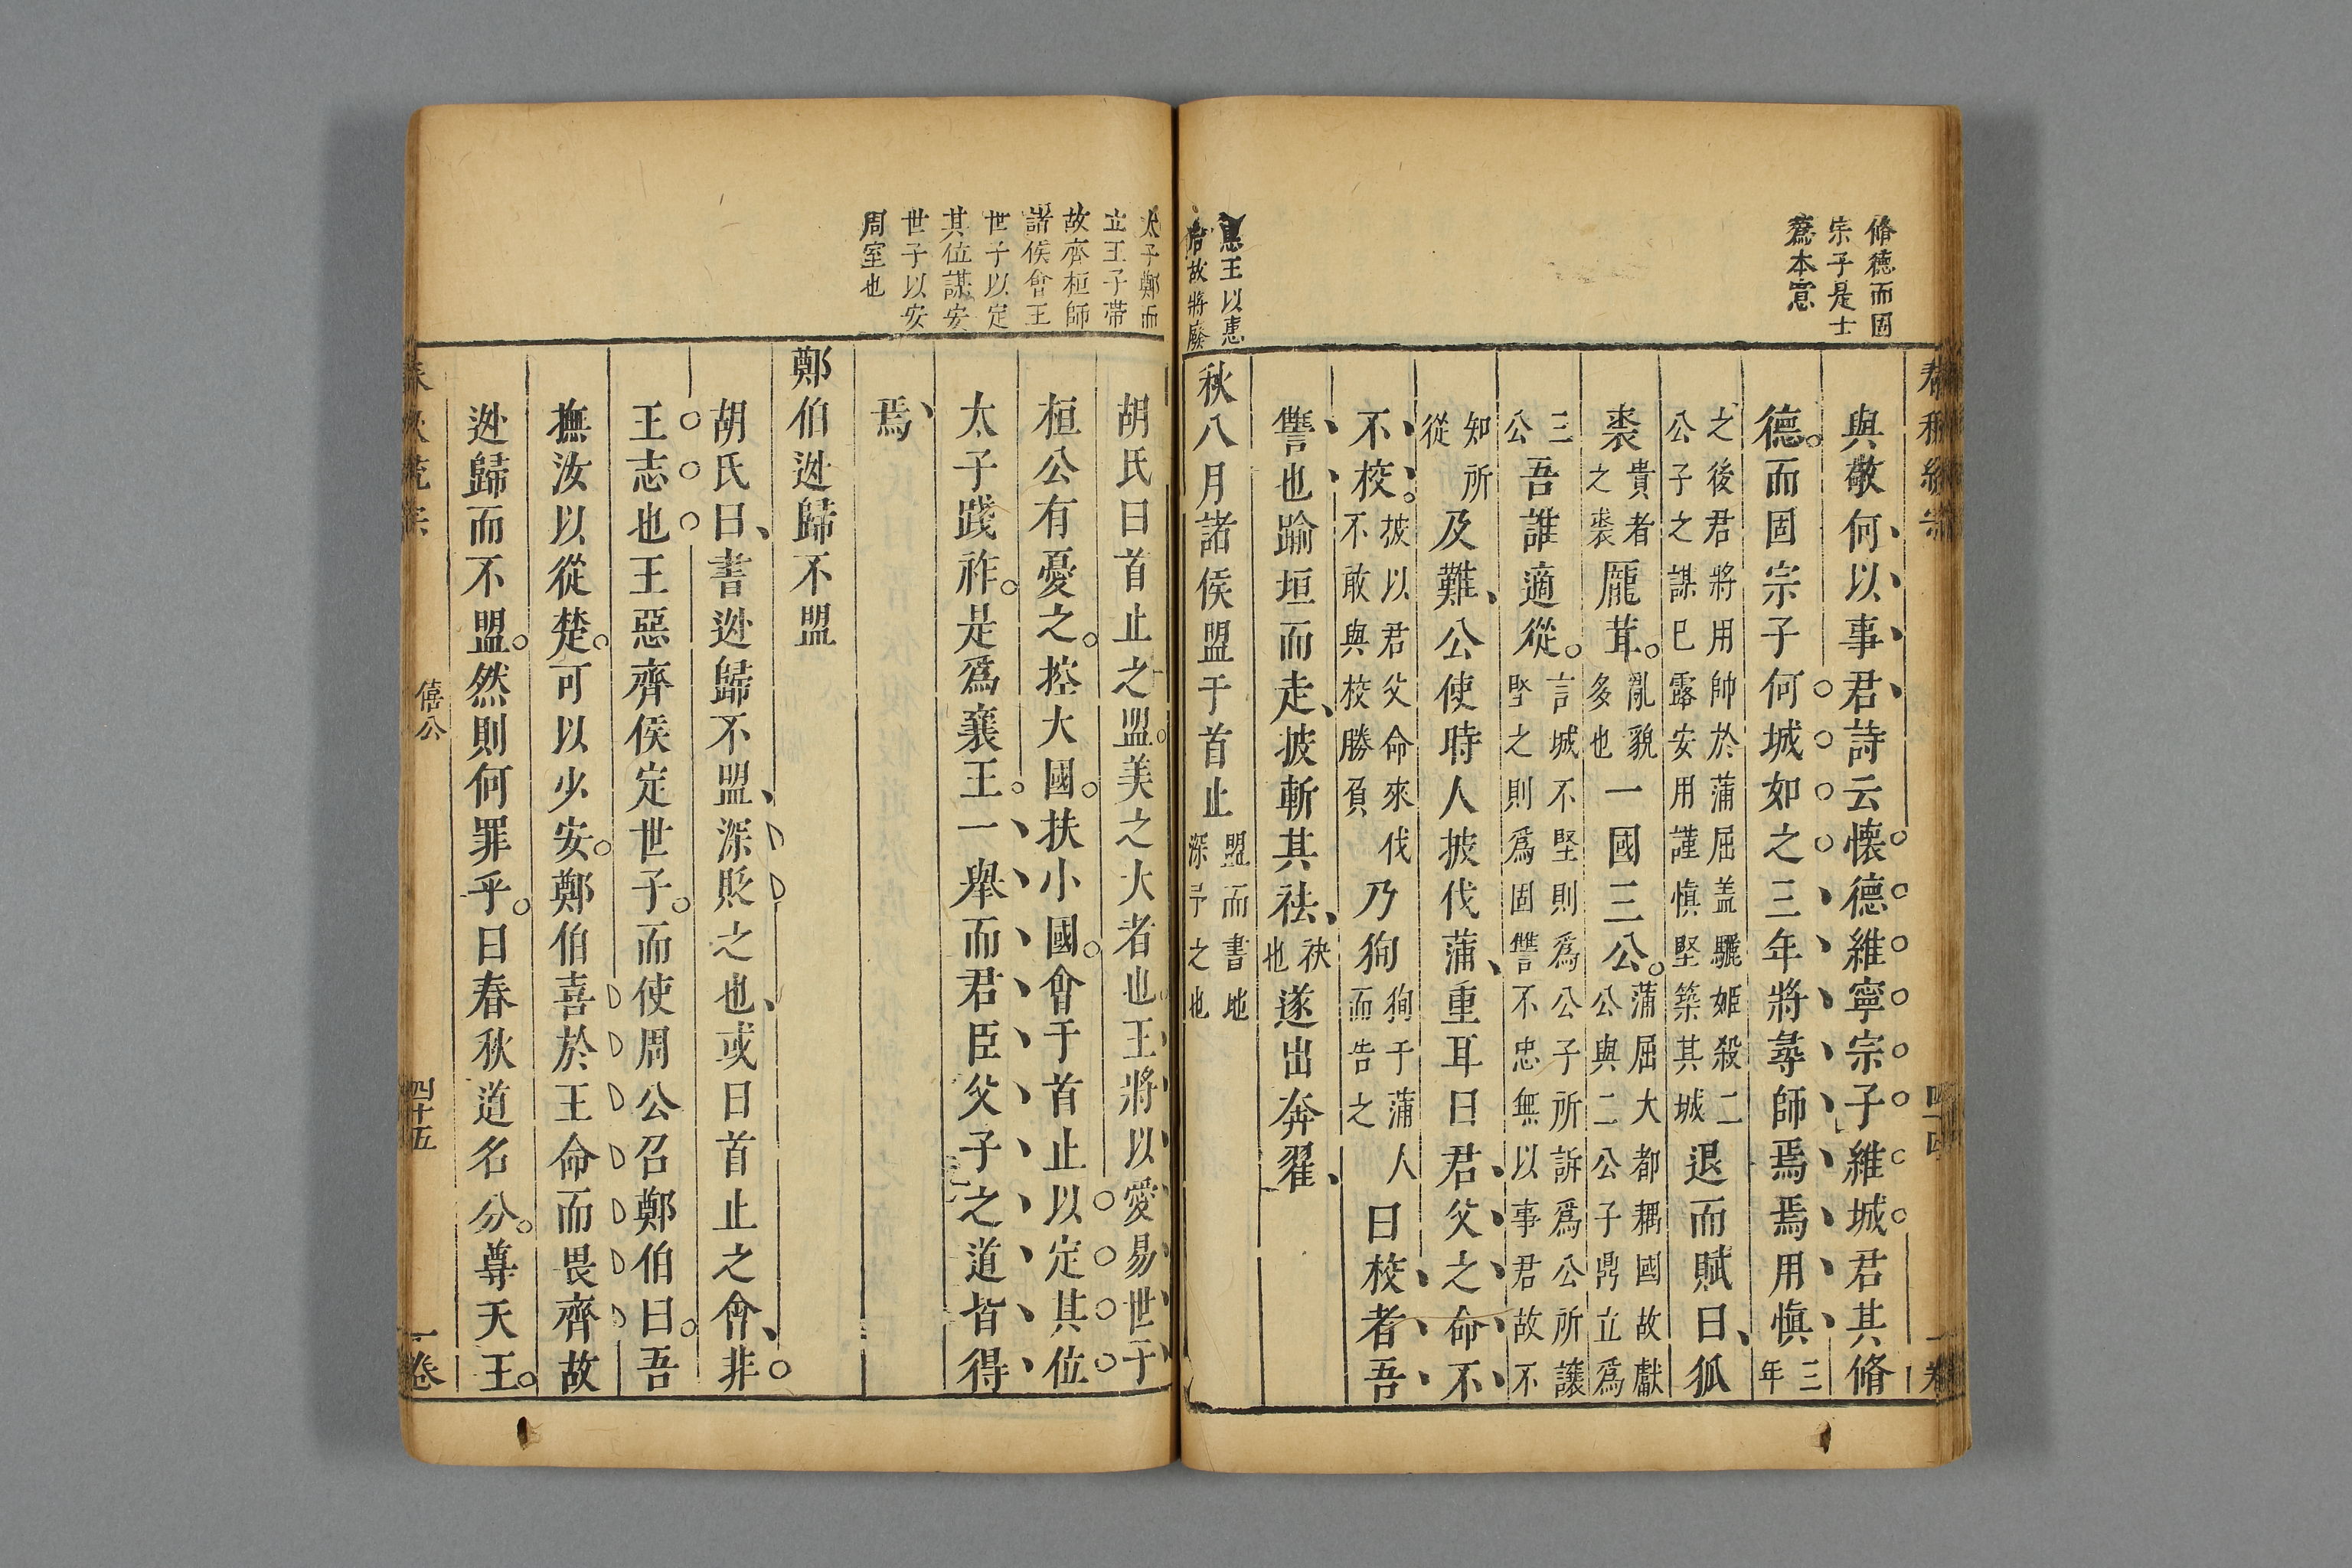 脩德而固
宗子是士
蔿本意
與敬何以事君詩云懷德維寧宗子維城君其脩
德而固宗子何城如之三年將㝷師焉焉用慎三年
之後君將用師於蒲屈盖驪姬殺二公子之謀已露安用謹慎堅築其城退而賦曰狐
裘貴者之裘厖茸亂貌多也一國三公蒲屈大都耦國故獻公與二公子鼎立爲
三公吾誰適從言城不堅則爲公子所訴爲公所讓堅之則爲固讐不忠無以事君故不
知所從及難公使時人披伐蒲重耳曰君父之命不
不校披以君父命來伐不敢與校勝負乃狥狥于蒲人而告之曰校者吾
讐也踰垣而走披斬其祛袂也遂出奔翟
惠王以惠
后故將廢
秋八月諸侯盟于首止盟而書地深予之也
太子鄭而
立王子帶
故齊桓師
諸侯會王
世子以定
其位謀安
世子以安
周室也
胡氏曰首止之盟美之大者也王將以愛易世于
桓公有憂之控大國扶小國會于首止以定其位
太子踐祚是爲襄王一舉而君臣父子之道皆得
焉
鄭伯逃歸不盟
胡氏曰書逃歸不盟深貶之也或曰首止之會非
王志也王惡齊侯定世子而使周公召鄭伯曰吾
撫汝以從楚可以少安鄭伯喜於王命而畏齊故
逃歸而不盟然則何罪乎曰春秋道名分尊天王
僖公 四十五 一卷